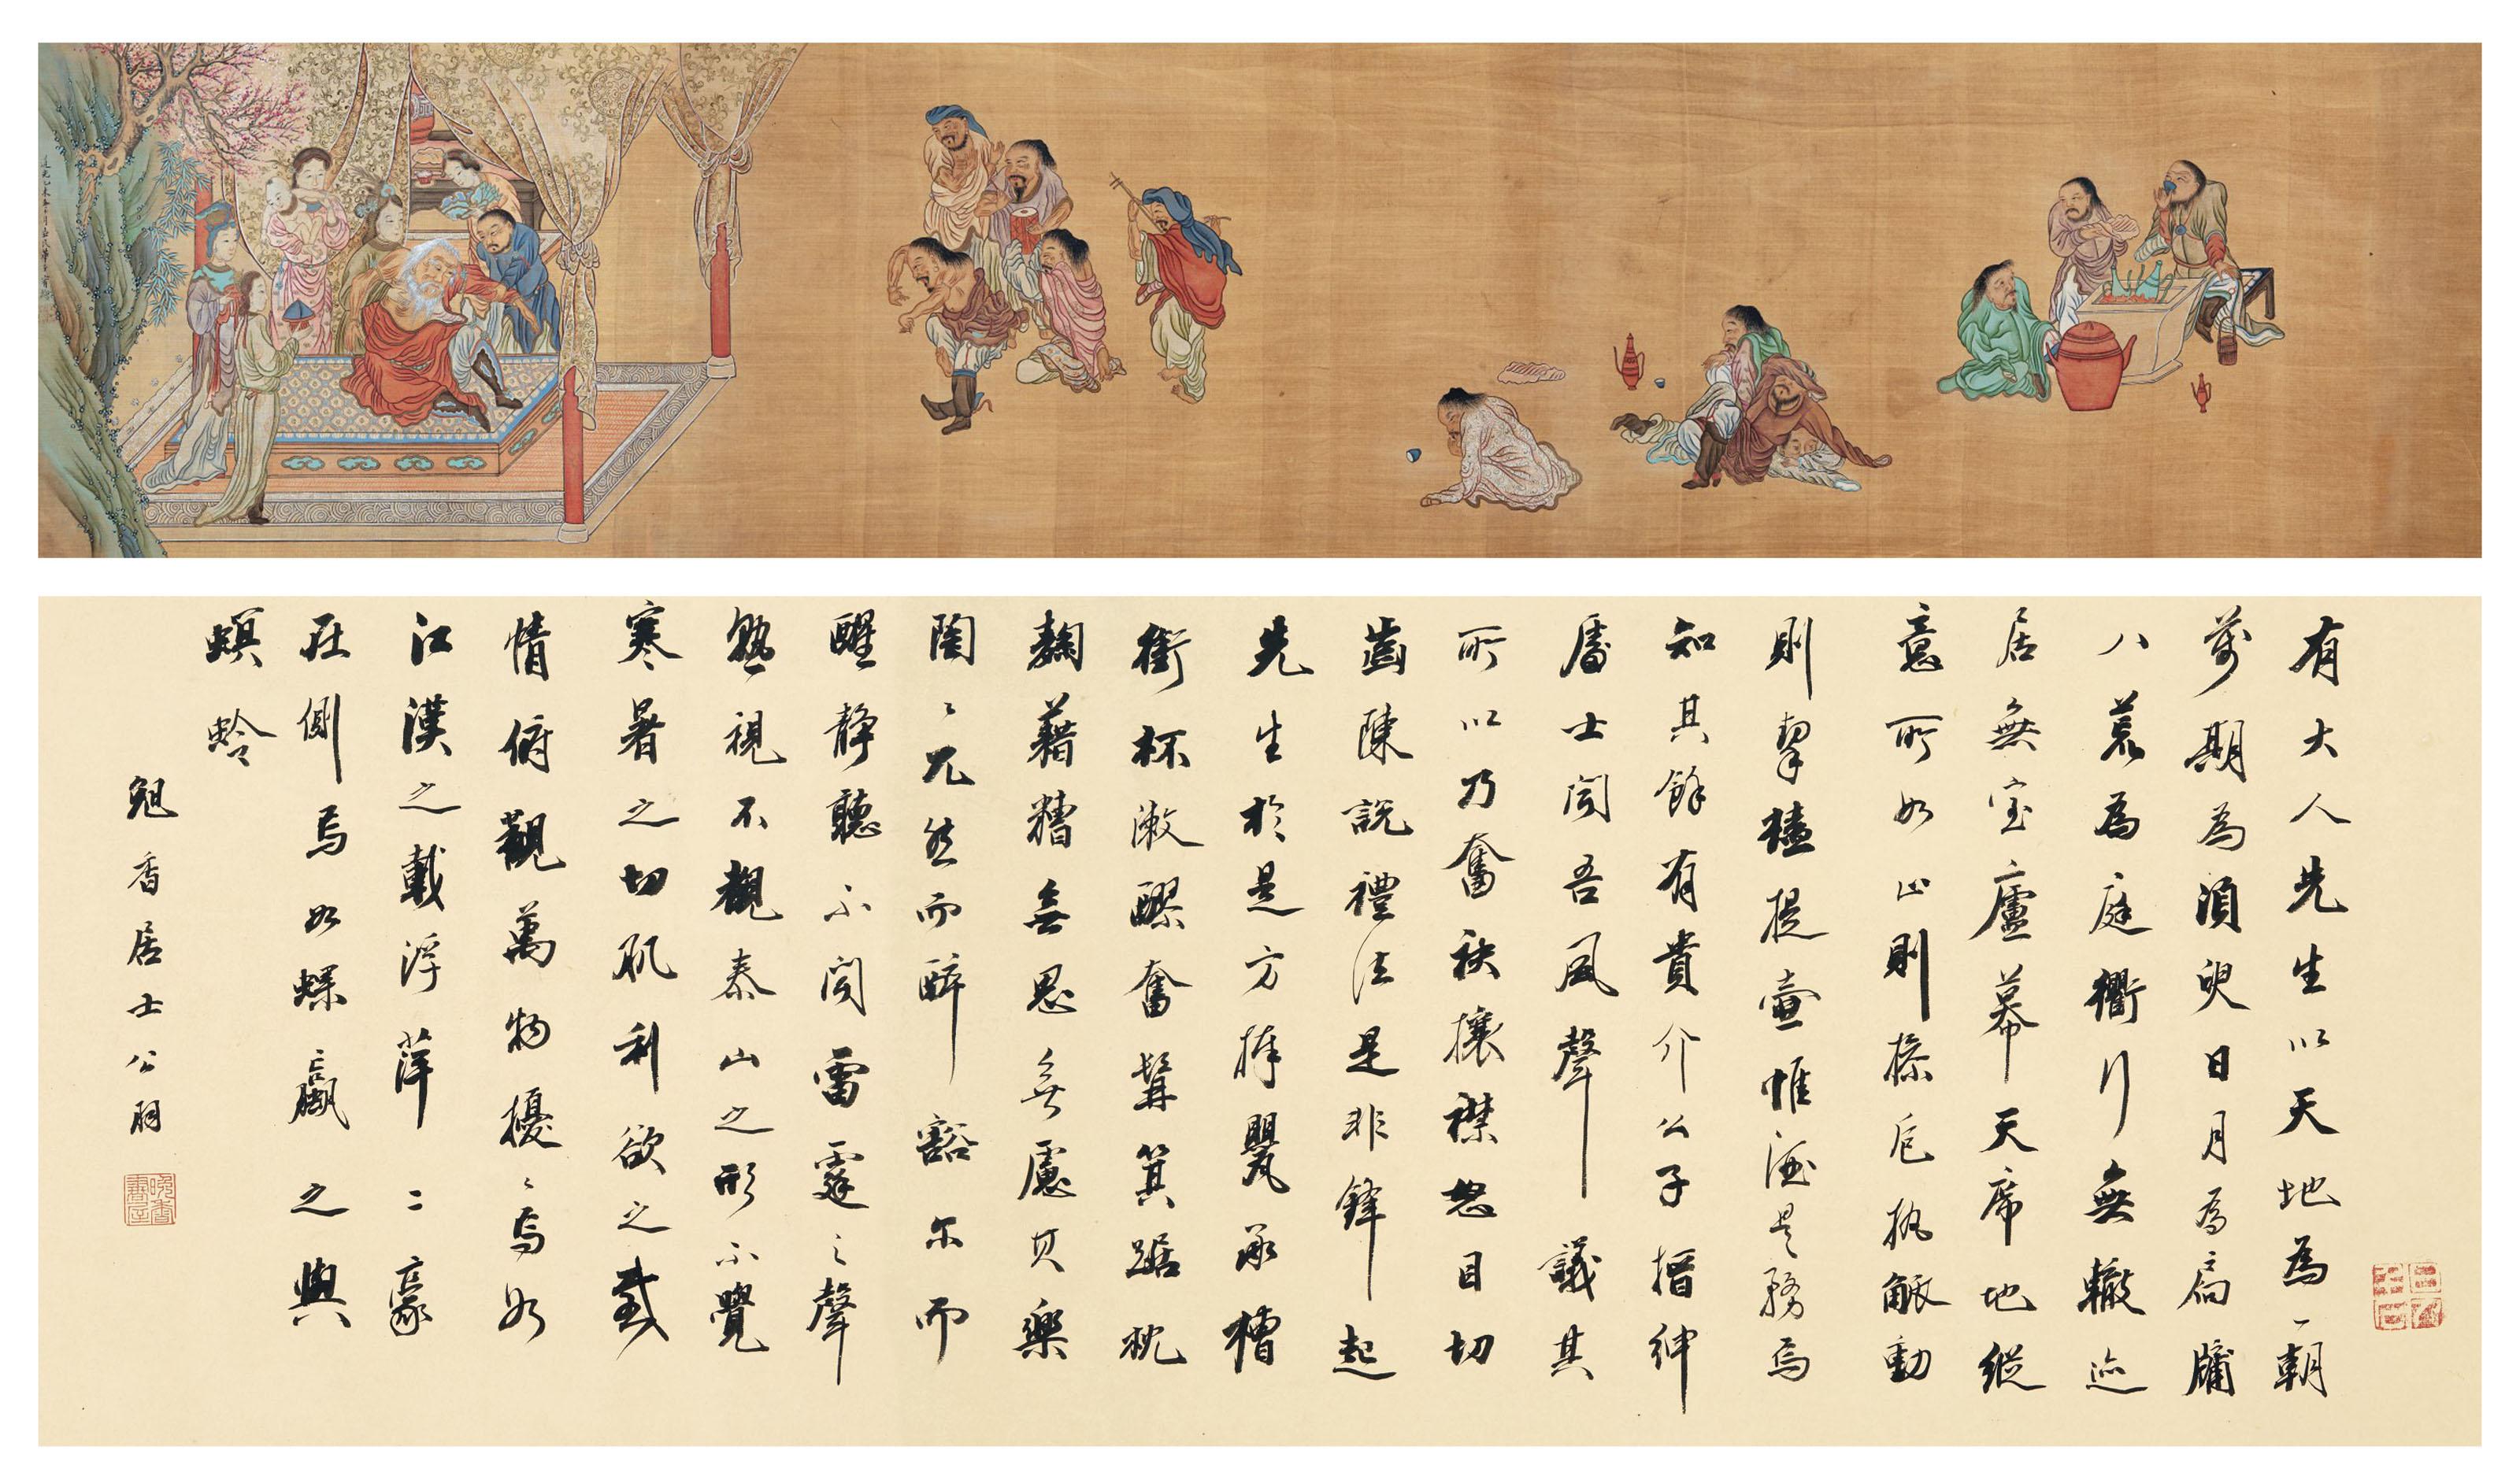 有大人先生以天地為一朝
萬期為須臾日月為扃牖
八荒為庭衢行無轍迹
居無室廬幕天席地縱
意所如止則操卮執觚動
則挈榼提壺惟酒是務焉
知其餘有貴介公子搢紳
處士聞吾風聲議其
所以乃奮袂攘襟怒目切
齒陳說禮法是非鋒起
先生於是方捧罌承槽
銜杯漱醪奮髯箕踞枕
麴藉糟無思無慮其樂
陶〻兀然而醉豁尔而
醒靜聽不聞雷霆之聲
熟視不覩泰山之形不覺
寒暑之切肌利欲之感
情俯觀萬物擾〻焉如
江漢之載浮萍二豪
在側焉如蜾蠃之與
螟蛉
香居士公羽
晚香書屋